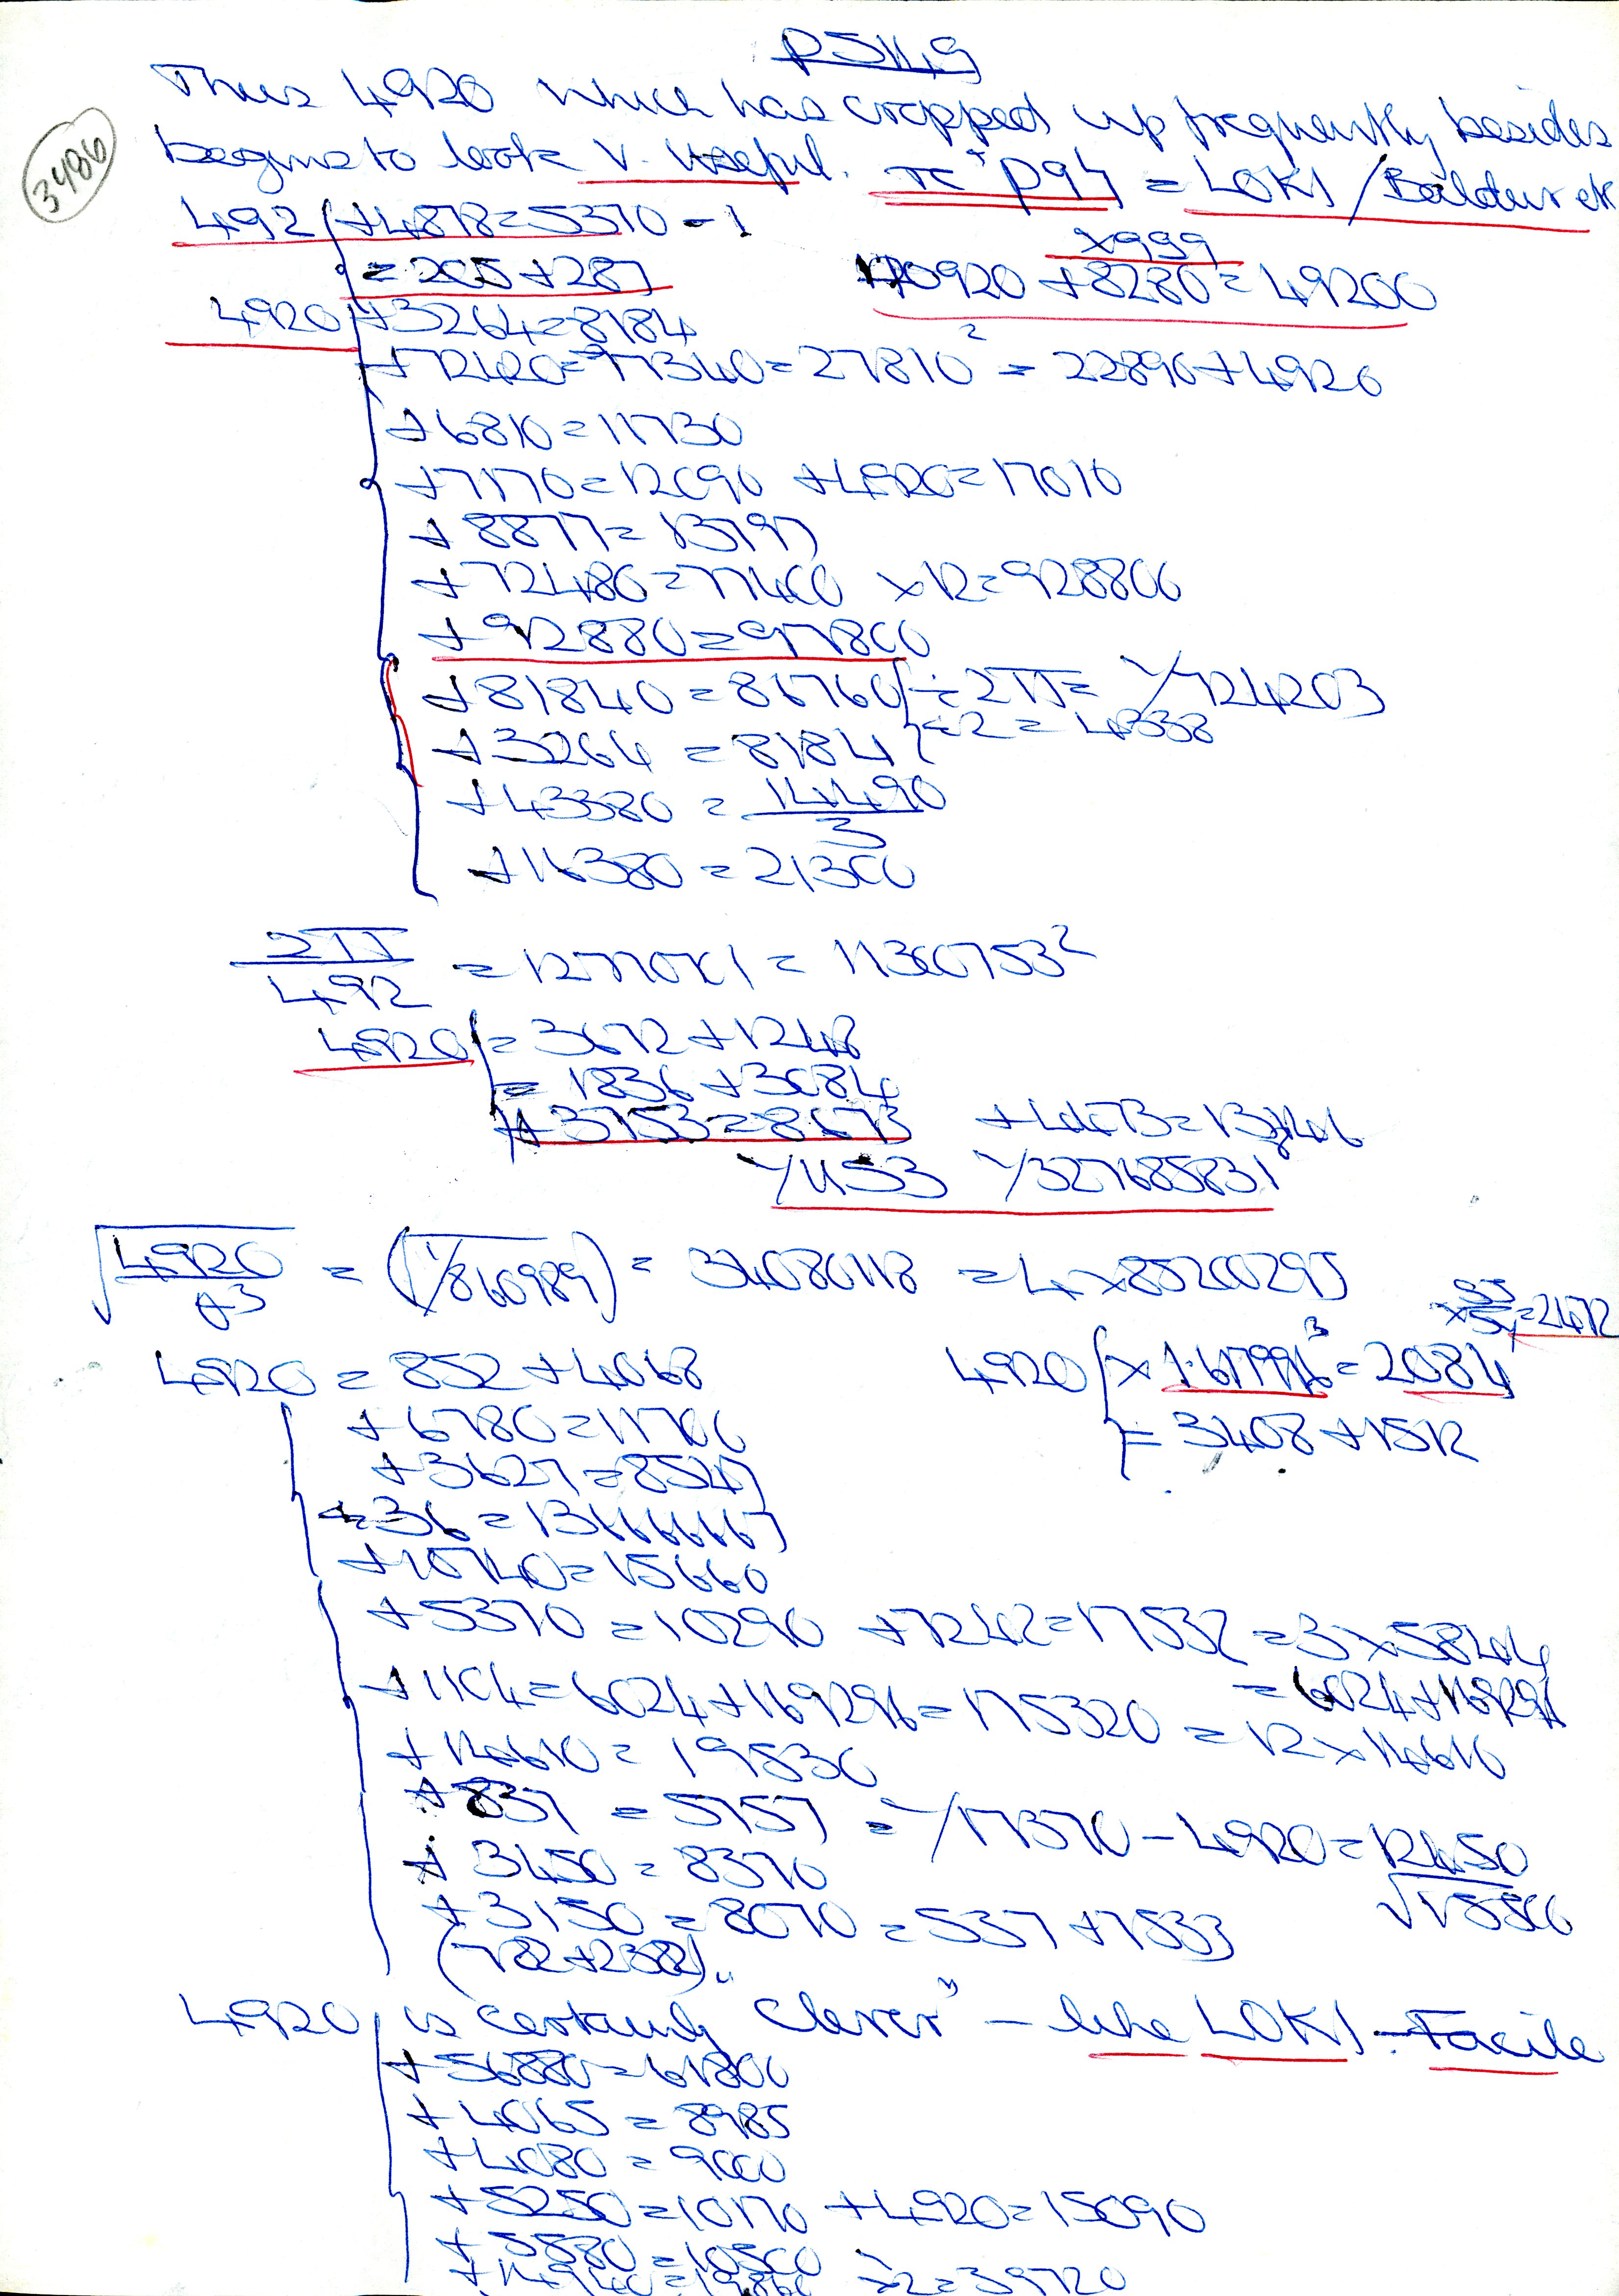 P5149
Thus 4920 which has cropped up frequently besides
3486
begins to look V. Useful. P94 = LOKI / Baldur etc
492 +4878=5370-1
×999
= 205 +287
40920 +8280= 49200
4920 +3264=8184
+72420=77340=27810² = 22890+4920
+6810=11730
+7170=12090 +4920=17010
+8877=13797
+72480=77400 ×12=928800
+92880=97800
+81840=86760 ÷2π= 1/724203
÷2 = 4338
+3264 = 8184
+43380 = 14490/3
+16380=21300
2π/492 = 1277051 = 11300753²
4920 = 3672+1248
= 1836+3084
+3753=8673 +4473=13146
1/1153 1/327685831
√4920/A3 = (√1/860989) = 34080118 = 4×85200295
4920 = 852 +4068
4920 × 1.617996³ = 2084
= 3408+1512
+6780=11700
+3627=8547
÷36=136666667
+10740=15660
+5370=10290 +7242=17532 =3×5844
+1104=6024+169296=175320 = 12×14610
= 6024+169296
+14610=19530
+837 = 5757 = 1/17370-4920=12450
√15500
+3450=8370
+3150=8070=537+7533
(782+2382)
4920 is certainly "Clever" - like LOKI - Facile
+56880=61800
+4065=8985
+4080=9000
+5250=10170 +4920=15090
+5580=10500
+14940=19860 ×2=39720